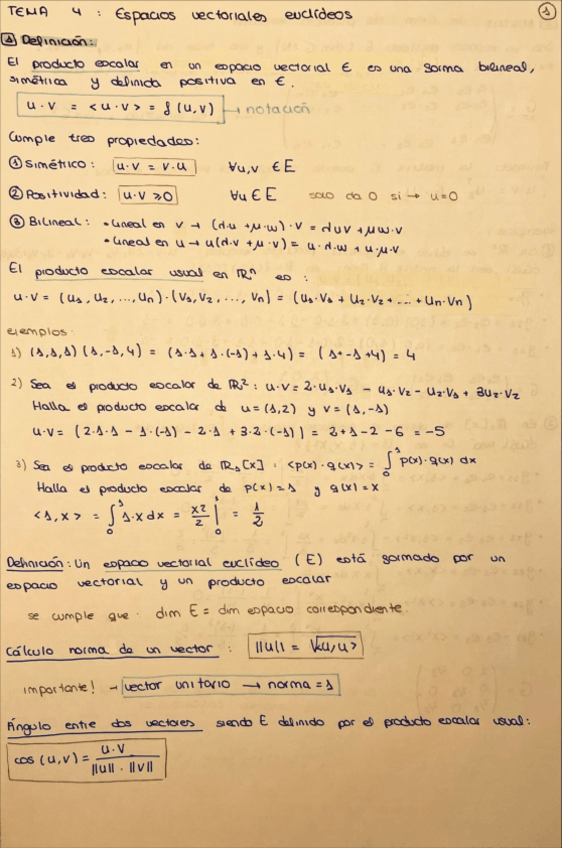 TEMA 4 : Espacios vectoriales euclídeos
①
1 Definición:
El producto escalar en un espacio vectorial E es una forma bilineal,
simétrica y definida positiva en E.
u·v = <u·v> = f(u,v) → notación
Cumple tres propiedades:
① Simétrico: u·v = v·u ∀u,v ∈ E
② Positividad: u·v ≥ 0 ∀u ∈ E solo da 0 si → u=0
③ Bilineal: • lineal en v → (α·u + μ·w)·v = αuv + μw·v
• lineal en u → u(α·v + μ·v) = u·α·w + u·μ·v
El producto escalar usual en ℝⁿ es :
u·v = (u₁, u₂, ..., uₙ)·(v₁, v₂, ..., vₙ) = (u₁·v₁ + u₂·v₂ + ... + uₙ·vₙ)
ejemplos·
1) (1,1,1)(1,-1,4) = (1·1 + 1·(-1) + 1·4) = (1+-1+4) = 4
2) Sea el producto escalar de ℝ²: u·v = 2·u₁·v₁ - u₁·v₂ - u₂·v₁ + 3u₂·v₂
Halla el producto escalar de u=(1,2) y v=(1,-1)
u·v = (2·1·1 - 1·(-1) - 2·1 + 3·2·(-1)) = 2+1-2-6 = -5
3) Sea el producto escalar de ℝ₁[x] : <p(x)·q(x)> = ∫₀¹ p(x)·q(x) dx
Halla el producto escalar de p(x)=1 y q(x)=x
<1,x> = ∫₀¹ 1·x dx = x²/2 |₀¹ = 1/2
Definición: Un espacio vectorial euclídeo (E) está formado por un
espacio vectorial y un producto escalar
se cumple que· dim E = dim espacio correspondiente.
Cálculo norma de un vector : ||u|| = √<u,u>
importante! → vector unitario → norma = 1
Ángulo entre dos vectores siendo E definido por el producto escalar usual:
cos (u,v) = u·v / ||u|| · ||v||